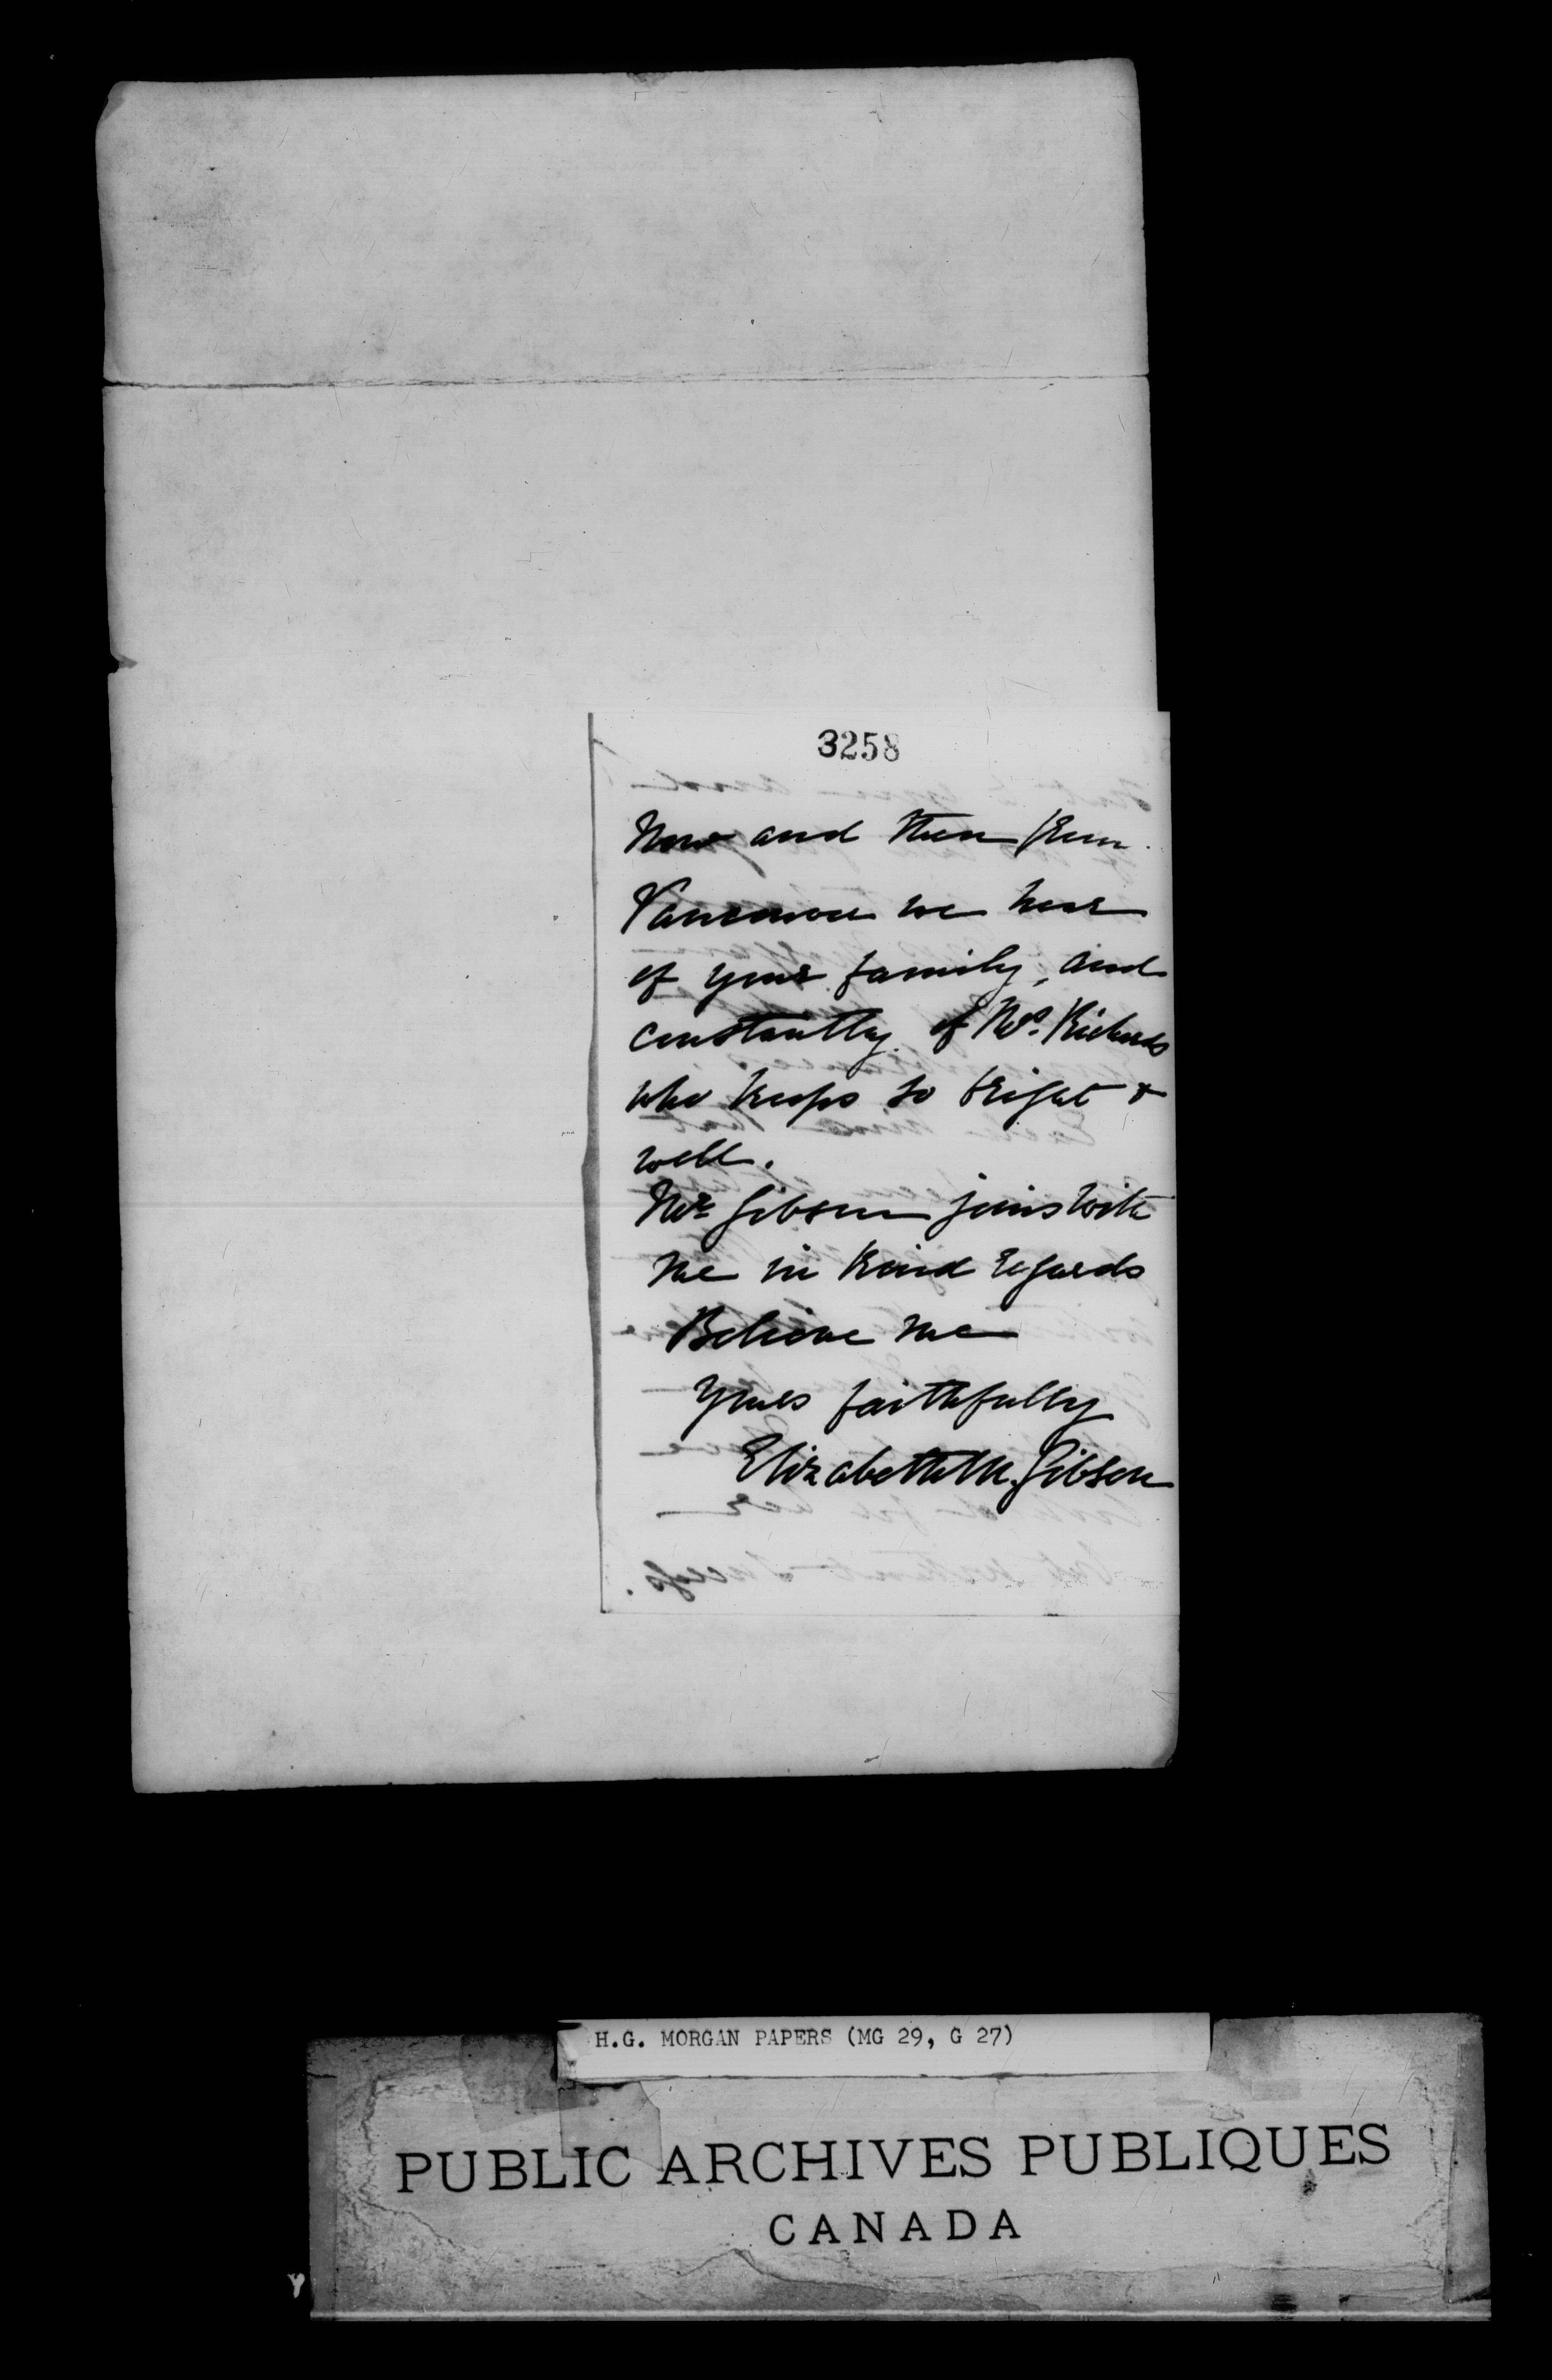 3258
Now and then from
Vancouver we hear
of your family, and
constantly of Mrs. Richards
who keeps so bright &
well.
Mr Gibson joins with
me in kind regards
Believe me
Yours faithfully
Elizabeth M. Gibson
H.G. MORGAN PAPERS (MG 29, G 27)
PUBLIC ARCHIVES PUBLIQUES
CANADA